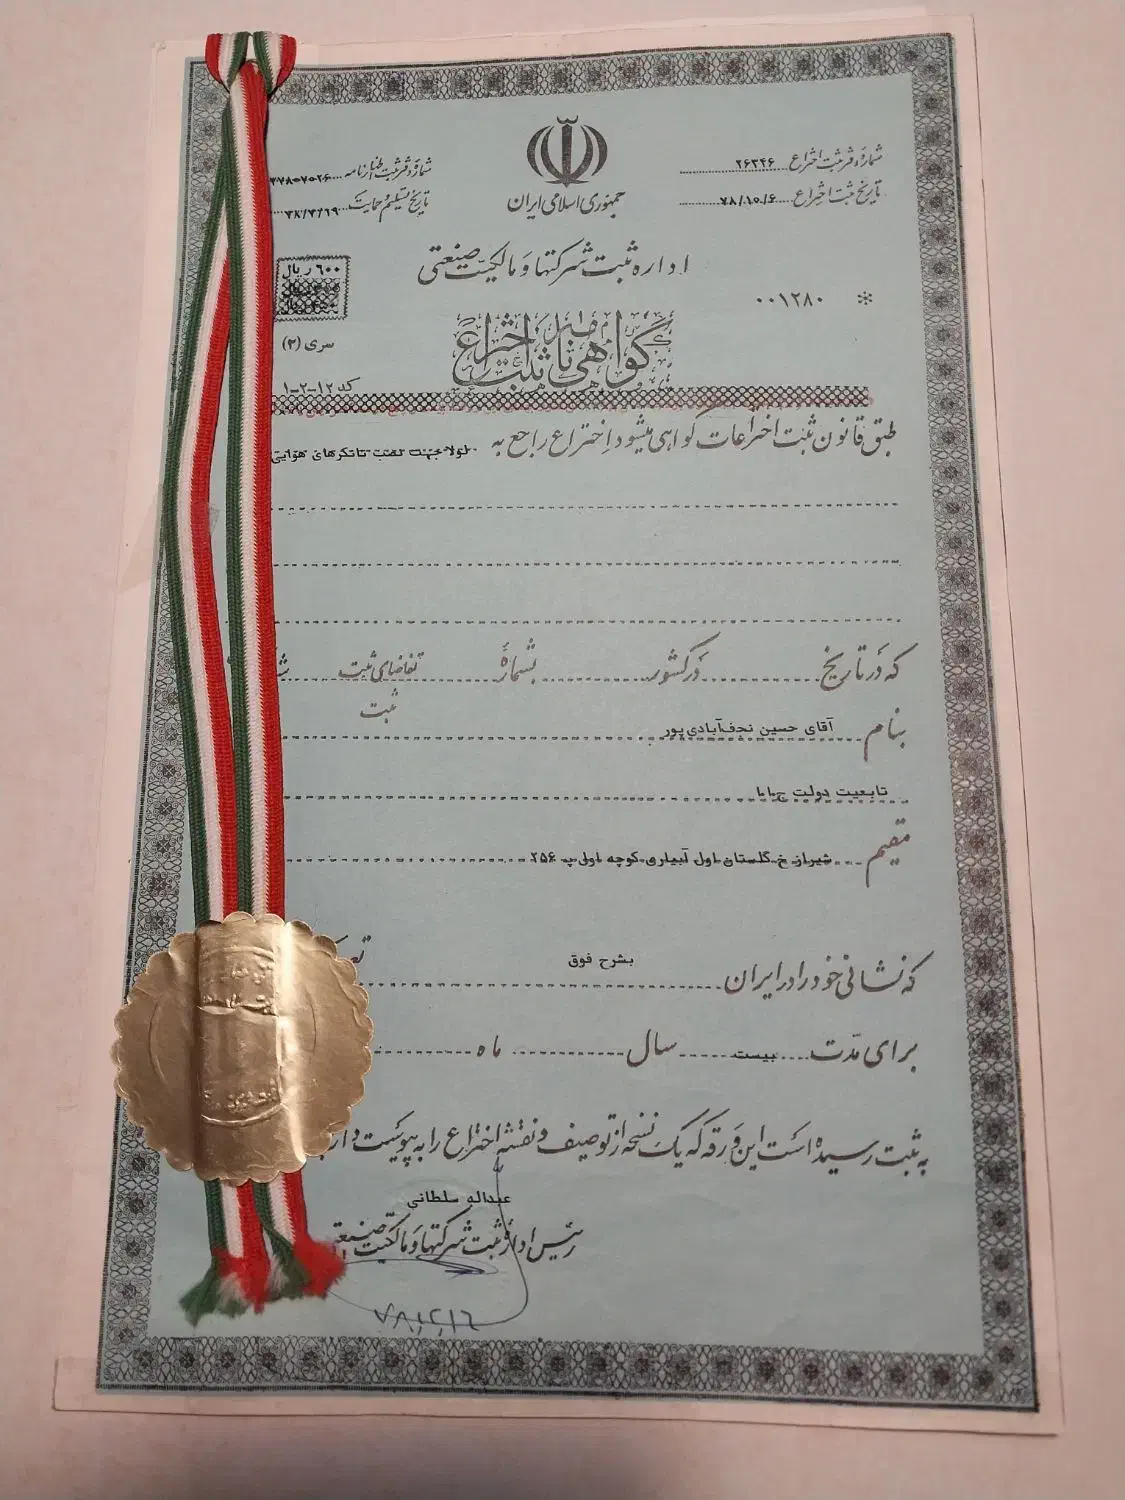 جمهوری اسلامی ایران
شماره دفتر ثبت اختراع ۲۶۳۴۶
تاریخ ثبت اختراع ۷۸/۱۰/۶
شماره دفتر ثبت اظهارنامه ۳۷۸۰۷۰۲۶
تاریخ تسلیم و حمایت ۷۸/۷/۱۹
اداره ثبت شرکتها و مالکیت صنعتی
۰۰۱۲۸۰ *
۶۰۰ ریال
سری (۲)
کد ۱۲-۲-۱
گواهی نامه ثبت اختراع
طبق قانون ثبت اختراعات گواهی میشود اختراع راجع به جهت نصب تانکرهای هوایی
که در تاریخ در کشور بشماره تقاضای ثبت
ثبت
بنام آقای حسین نجف‌آبادی‌پور
تابعیت دولت ج.ا.ا
مقیم شیراز خ گلستان اول آبیاری کوچه اولی پ ۲۵۶
که نشانی خود را در ایران بشرح فوق
برای مدت بیست سال ماه
به ثبت رسیده است این ورقه که یک نسخه از توصیف و نقشه اختراع را به پیوست
عبداله سلطانی
رئیس اداره ثبت شرکتها و مالکیت صنعتی